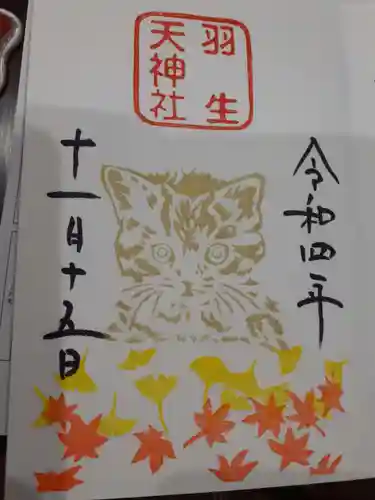 羽生
天神社
令和四年
十一月十五日